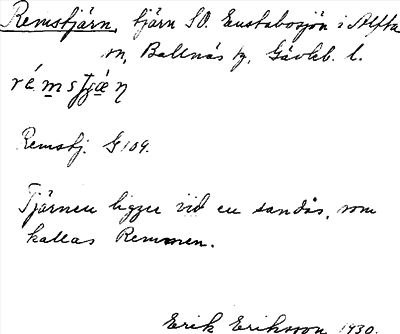 Remstjärn, tjärn SO. Gustabosjön i Alfta
sn, Bollnäs kg, Gävleb. l.
rémstjæ̣n
Remstj. G 109.
Tjärnen ligger vid en sandås, som
kallas Remmen.
Erik Eriksson 1930.